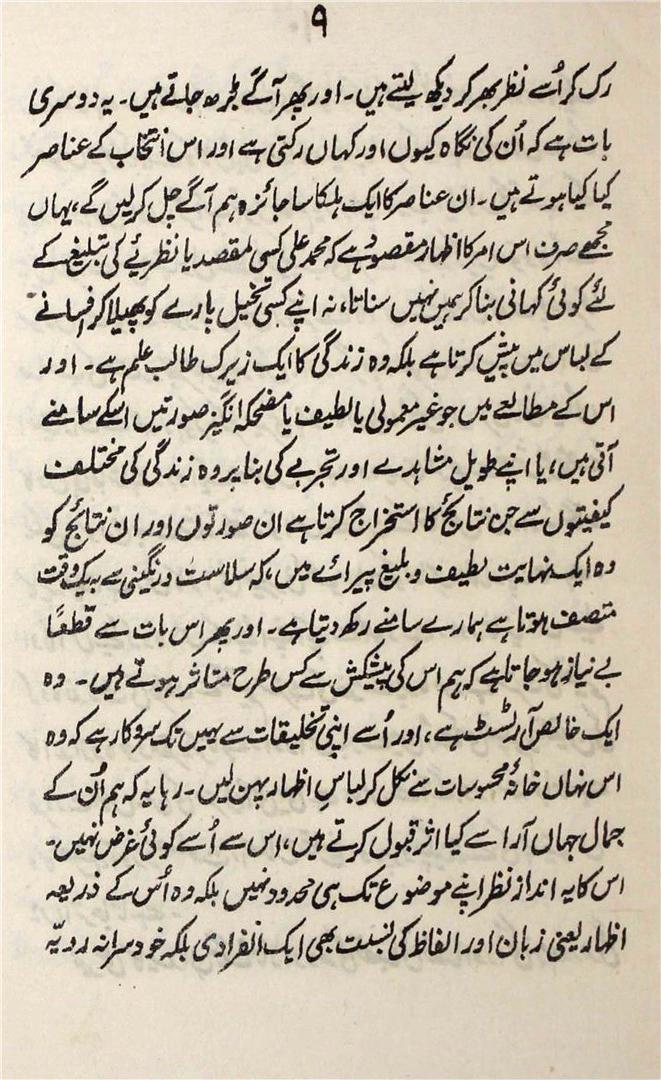 ۹
رک کر اُسے نظر بھر کر دیکھ لیتے ہیں۔ اور پھر آگے بڑھ جاتے ہیں۔ یہ دوسری
بات ہے کہ اُن کی نگاہ کیوں اور کہاں رکتی ہے اور اس انتخاب کے عناصر
کیا کیا ہوتے ہیں۔ ان عناصر کا ایک ہلکا سا جائزہ ہم آگے چل کر لیں گے، یہاں
مجھے صرف اس امر کا اظہار مقصود ہے کہ محمد علی کسی مقصد یا نظریئے کی تبلیغ کے
لئے کوئی کہانی بنا کر ہمیں نہیں سناتا، نہ اپنے کسی تخیل پارے کو پھیلا کر افسانے
کے لباس میں پیش کرتا ہے بلکہ وہ زندگی کا ایک زیرک طالب علم ہے۔ اور
اس کے مطالعے میں جو غیر معمولی یا لطیف یا مضحکہ انگیز صورتیں اسکے سامنے
آتی ہیں، یا اپنے طویل مشاہدے اور تجربے کی بنا پر وہ زندگی کی مختلف
کیفیتوں سے جن نتائج کا استخراج کرتا ہے ان صورتوں اور ان نتائج کو
وہ ایک نہایت لطیف و بلیغ پیرائے میں، کہ سلاست و رنگینی سے بہ یک وقت
متصف ہوتا ہے ہمارے سامنے رکھ دیتا ہے۔ اور پھر اس بات سے قطعاً
بے نیاز ہو جاتا ہے کہ ہم اس کی پیشکش سے کس طرح متاثر ہوتے ہیں۔ وہ
ایک خالص آرٹسٹ ہے، اور اُسے اپنی تخلیقات سے یہیں تک سروکار ہے کہ وہ
اس نہاں خانۂ محسوسات سے نکل کر لباسِ اظہار پہن لیں۔ رہا یہ کہ ہم اُن کے
جمال جہاں آرا سے کیا اثر قبول کرتے ہیں، اس سے اُسے کوئی غرض نہیں۔
اس کا یہ اندازِ نظر اپنے موضوع تک ہی محدود نہیں بلکہ وہ اُس کے ذریعہ
اظہار یعنی زبان اور الفاظ کی نسبت بھی ایک انفرادی بلکہ خود سرانہ رویّہ